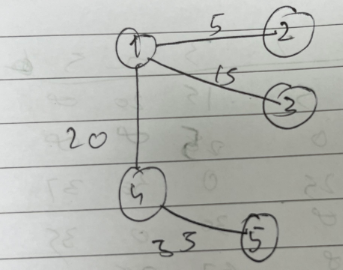 5
1 2
15
3
20
4
35 5